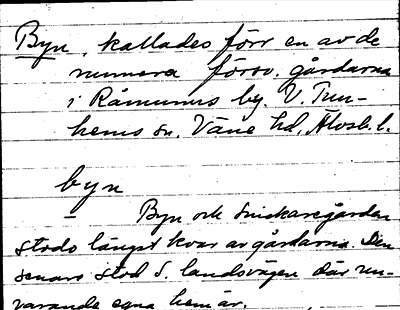 Byn, kallades förr en av de
numera försv. gårdarna
i Råmunus by. V. Tun-
hems sn. Väne hd, Älvsb. l.
byn
Byn och Snickaregården
stodo längst kvar av gårdarna. Den
senare stod S. landsvägen där nu-
varande egna hem är.